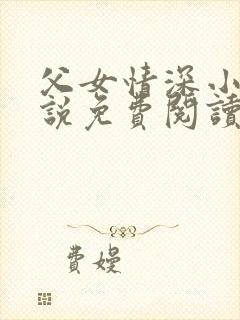 父女情深小
説免費閱讀
費嫚